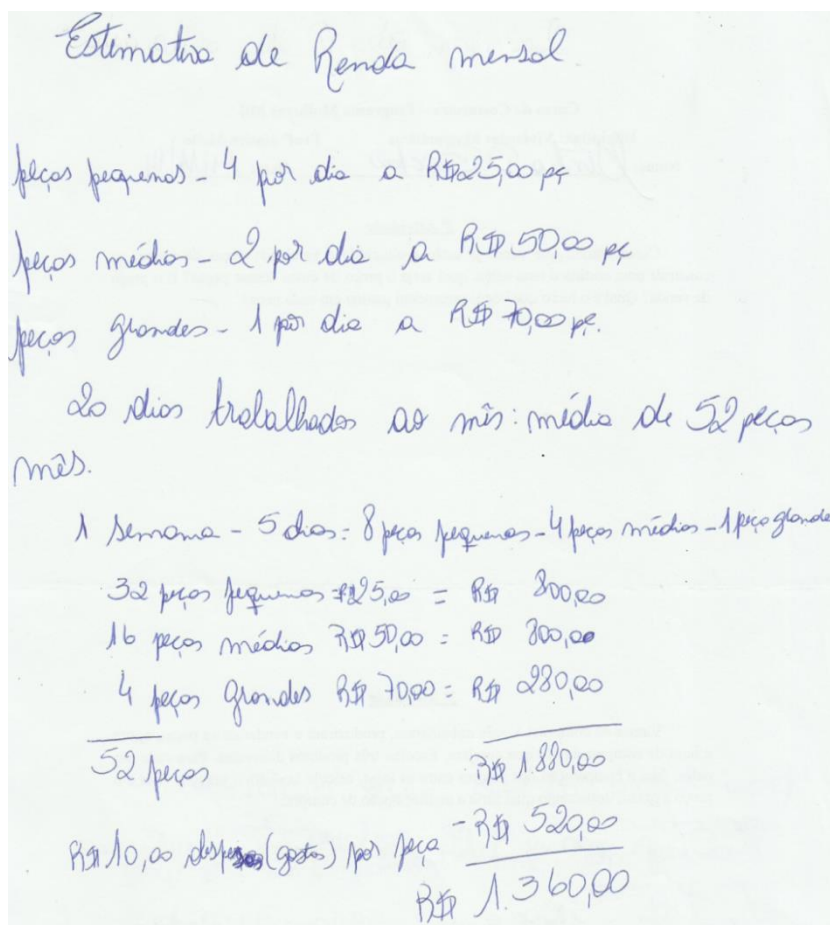 Estimativa de Renda mensal.
peças pequenas - 4 por dia a R$ 25,00 pç
peças médias - 2 por dia a R$ 50,00 pç
peças grandes - 1 por dia a R$ 70,00 pç.
20 dias trabalhados ao mês: média de 52 peças
mês.
1 semana - 5 dias = 8 peças pequenas - 4 peças médias - 1 peça grande
32 peças pequenas R$ 25,00 = R$ 800,00
16 peças médias R$ 50,00 = R$ 800,00
4 peças grandes R$ 70,00 = R$ 280,00
52 peças R$ 1.880,00
R$ 10,00 despesas (gastos) por peça - R$ 520,00
R$ 1.360,00